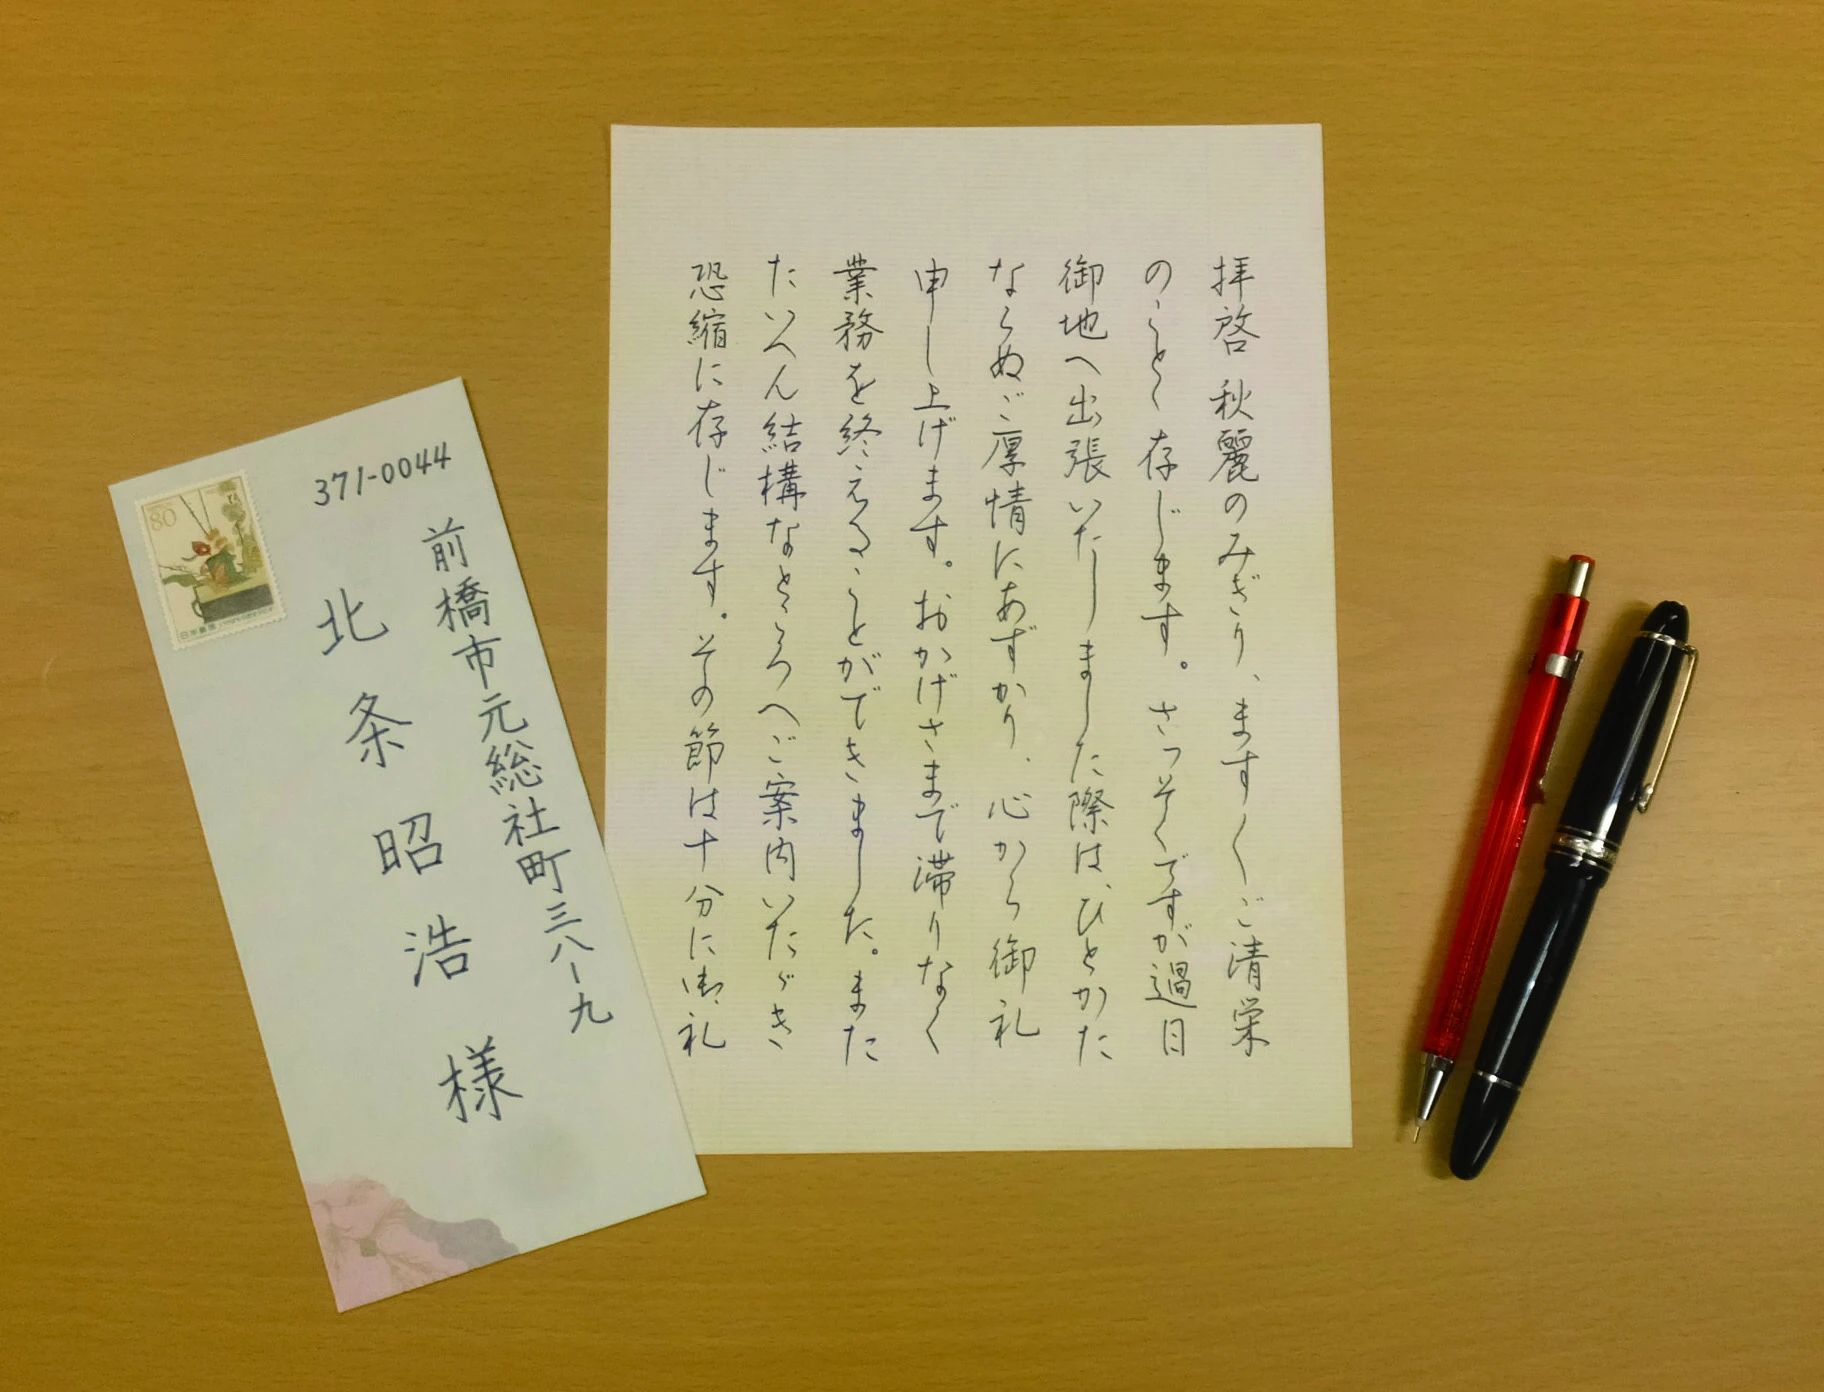 拝啓 秋麗のみぎり、ますしくご清栄
のことゝ存じます。さっそくですが過日
御地へ出張いたしました際は、ひとかた
ならぬご厚情にあずかり、心から御礼
申し上げます。おかげさまで滞りなく
業務を終えることができました。また
たいへん結構なところへご案内いたゞき
恐縮に存じます。その節は十分に御礼
371-0044
前橋市元総社町三八-九
北条昭浩様
80
日本郵便